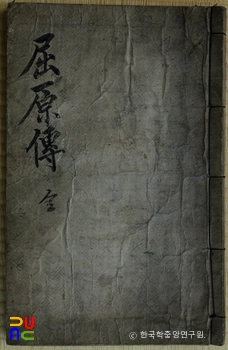 屈原傳
全
ⓒ 한국학중앙연구원.